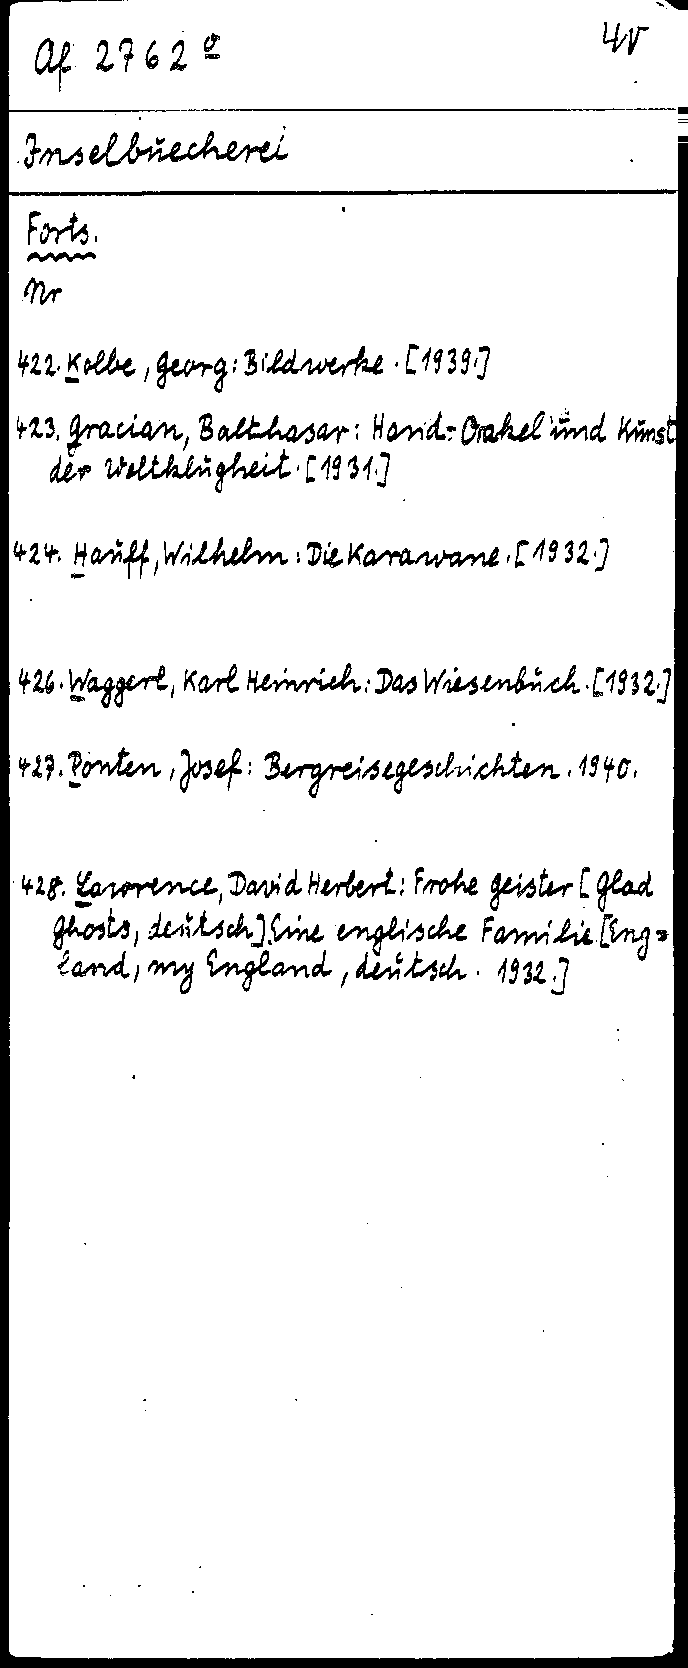 Af 2762 a
4v
Inselbuecherei
Forts.
Nr
422. Kolbe, Georg: Bildwerke. [1939.]
423. Gracian, Balthasar: Hand-Orakel und Kunst
der Weltklugheit. [1931.]
424. Hauff, Wilhelm: Die Karawane. [1932.]
426. Waggerl, Karl Heinrich: Das Wiesenbuch. [1932.]
427. Ponten, Josef: Bergreisegeschichten. 1940.
428. Lawrence, David Herbert: Frohe Geister [Glad
Ghosts, deutsch]. Eine englische Familie [Eng=
land, my England, deutsch. 1932.]